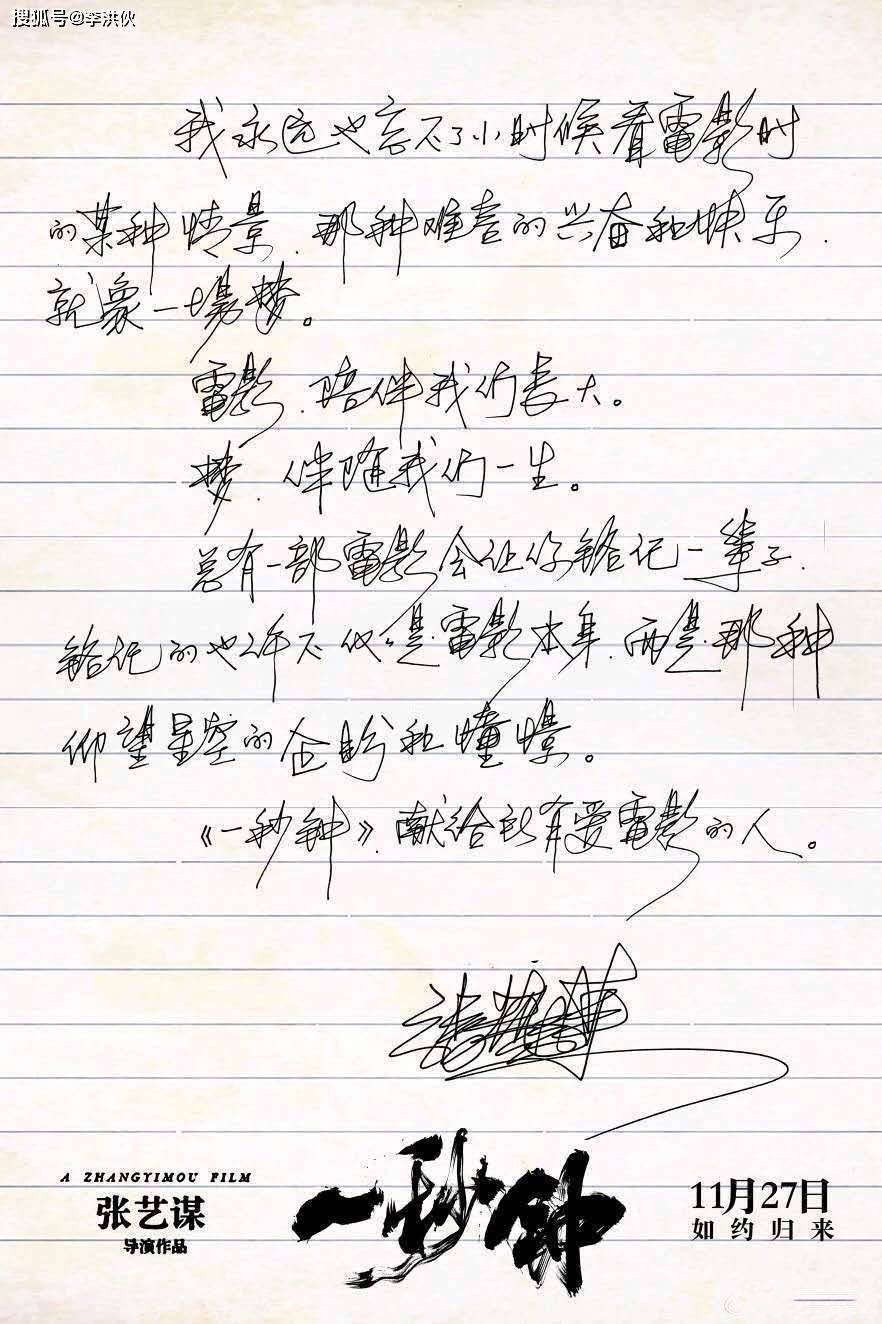 搜狐号@李洪伙
我永远也忘不了小时候看電影时
的某种情景，那种难言的兴奋和快乐，
就象一場梦。
電影，陪伴我们长大。
梦，伴随我们一生。
总有一部電影会让你铭记一辈子，
铭记的也许不仅仅是電影本身，而是那种
仰望星空的企盼和憧憬。
《一秒钟》，献给所有爱電影的人。
张艺谋
A ZHANGYIMOU FILM
张艺谋
导演作品
一秒钟
11月27日
如约归来